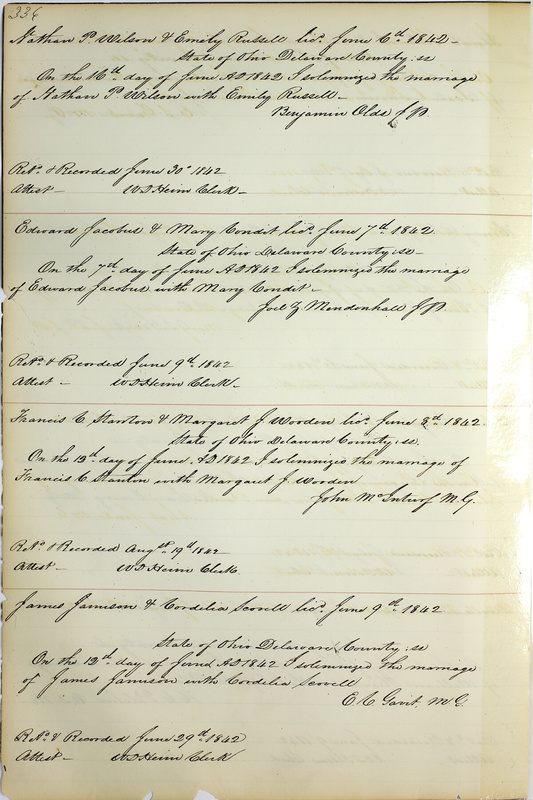 336
Nathan P. Wilson & Emily Russell lics. June 6th 1842 -
State of Ohio Delaware County ss
On the 16th day of June AD 1842 I solemnized the marriage
of Nathan P Wilson with Emily Russell -
Benjamin Olds J P.
Retd. & Recorded June 30th 1842
Attest - W D Heim Clerk -
Edward Jacobus & Mary Condit lics. June 7th 1842
State of Ohio Delaware County ss -
On the 7th day of June AD 1842 I solemnized the marriage
of Edward Jacobus with Mary Condit -
Joel Z Mendenhall J P.
Retd. & Recorded June 9th 1842
Attest - W D Heim Clerk -
Francis C Stanton & Margaret J Worden lics. June 8th 1842
State of Ohio Delaware County ss.
On the 12th day of June AD 1842 I solemnized the marriage of
Francis C Stanton with Margaret J Worden
John McInturf M. G.
Retd. & Recorded Augst. 19th 1842
Attest - W D Heim Clerk
James Jamison & Cordelia Scovell lics. June 9th 1842
State of Ohio Delaware County ss
On the 12th day of June AD 1842 I solemnized the marriage
of James Jamison with Cordelia Scovell
E. C. Gavit M G.
Retd. & Recorded June 29th 1842
Attest - W D Heim Clerk